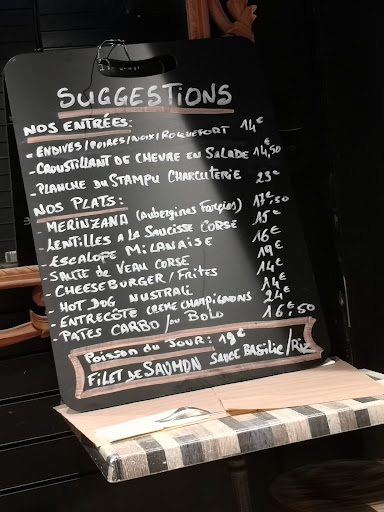 SUGGESTIONS
NOS ENTRÉES:
- ENDIVES/POIRES/NOIX/ROQUEFORT 14€
- CROUSTILLANT DE CHEVRE EN SALADE 14,50
- PLANCHE DU STAMPU CHARCUTERIE 23€
NOS PLATS:
- MERINZANA (aubergines Farçies) 17€,50
- LENTILLES A LA SAUCISSE CORSE 15€
- ESCALOPE MILANAISE 16€
- SAUTE DE VEAU CORSE 19€
- CHEESEBURGER/FRITES 14€
- HOT DOG NUSTRALI 14€
- ENTRECÔTE CREME CHAMPIGNONS 24€
- PATES CARBO/ou BOLO 16€,50
Poisson du Jour: 19€
FILET DE SAUMON SAUCE BASILIC/Riz